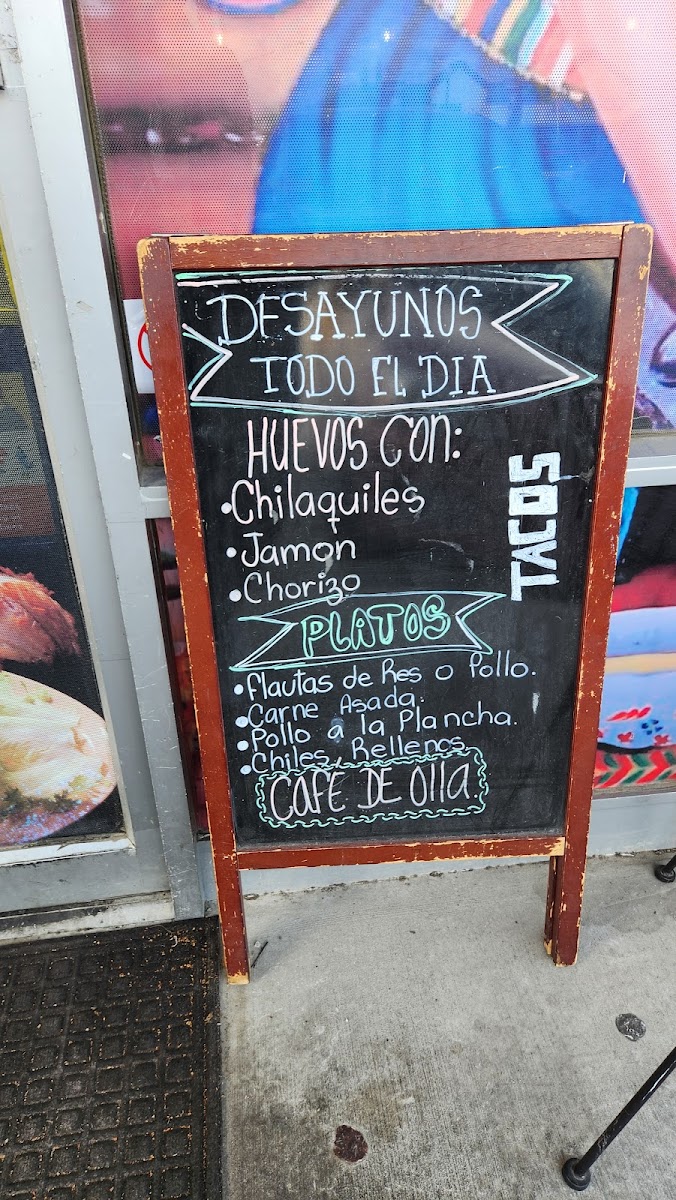 DESAYUNOS
TODO EL DIA
HUEVOS CON:
•Chilaquiles
•Jamon
•Chorizo
TACOS
PLATOS
•Flautas de Res o Pollo.
•Carne Asada.
•Pollo a la Plancha.
•Chiles Rellenos
CAFE DE Olla.